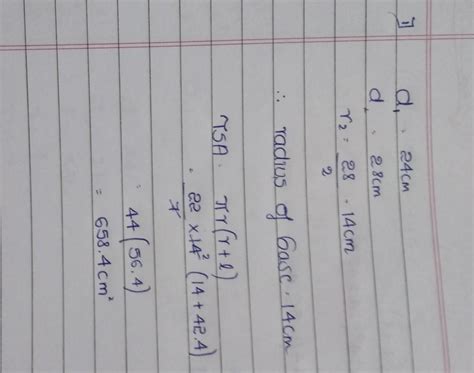 1]
d₁ = 24cm
d, = 28cm
r₂ = 28/2 = 14cm
∴ radius of base = 14cm
TSA = πr(r+l)
= 22/7 × 14² (14 + 42.4)
= 44(56.4)
= 658.4 cm²